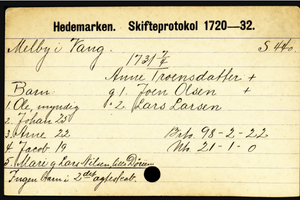 Hedemarken. Skifteprotokol 1720—32.
Melby i Vang. S 440.
1731 7/4
Anne Troensdatter +
Barn g 1. Joen Olsen +
1. Ole, myndig " 2. Lars Larsen
2. Johan 25
3. Anne 22 Bto 98-2-22
4. Jacob 19 Nto 21-1-0
5. Mari g Lars Nilsen, lille
Ingen Barn i 2det agteskab.